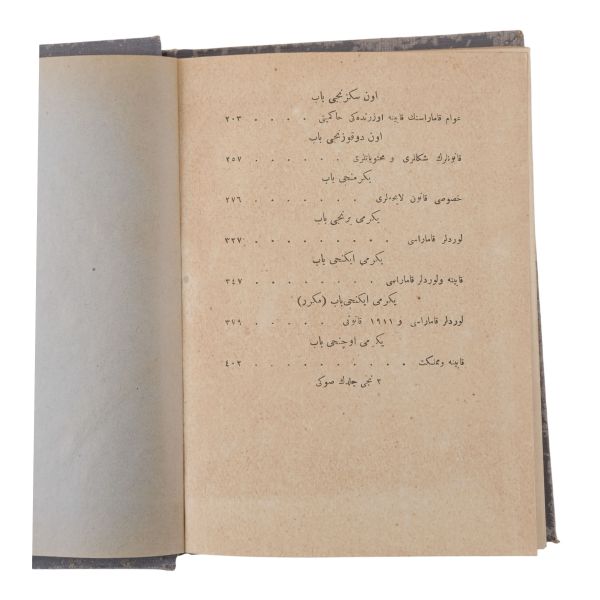 اون سكزنجی باب
عوام قاماراسنك قابینه اوزرنده‌كی حاكمیتی . . . . ٢٠٣
اون دوقوزنجی باب
قانونلرك شكللری و محتویاتلری . . . . . . ٢٥٧
یكرمنجی باب
خصوصی قانون لایحه‌لری . . . . . . . ٢٧٦
یكرمی برنجی باب
لوردلر قاماراسی . . . . . . . . ٣٢٧
یكرمی ایكنجی باب
قابینه ولوردلر قاماراسی . . . . . . . ٣٤٧
یكرمی ایكنجی باب (مكرر)
لوردلر قاماراسی و ١٩١١ قانونی . . . . . ٣٧٩
یكرمی اوچنجی باب
قابینه ومملكت . . . . . . . . . ٤٠٣
٢ نجی جلدك صوكی